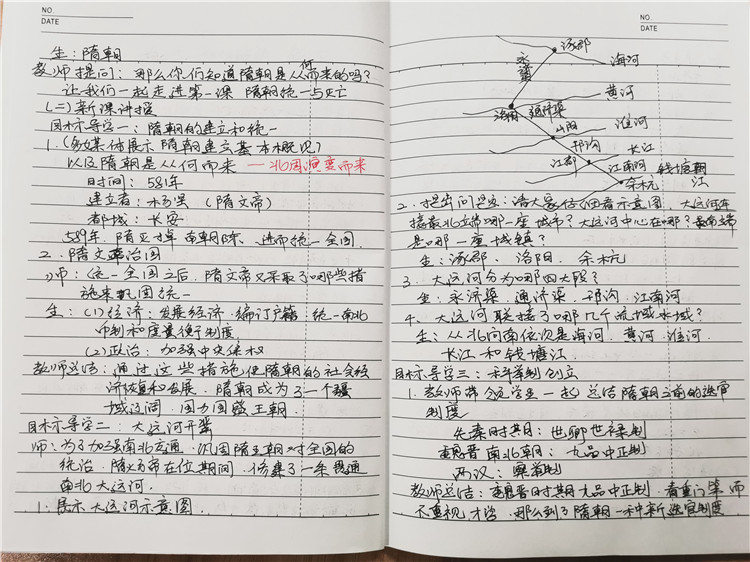 NO
DATE
生：隋朝
教师提问：那么你们知道隋朝是从何而来的吗？
让我们一起走进第一课 隋朝统一与灭亡
(二)新课讲授
目标导学一：隋朝的建立和统一
1.(多媒体展示隋朝建立基本概况)
以及隋朝是从何而来 —北周演变而来
时间：581年
建立者：杨坚（隋文帝）
都城：长安
589年，隋灭掉南朝陈，进而统一全国
2.隋文帝治国
师：(统一全国之后，隋文帝又采取了哪些措
施来巩固统一
生：(1)经济：发展经济，编订户籍，统一南北
币制和度量衡制度
(2)政治：加强中央集权
教师总结：通过这些措施，使隋朝的社会经
济恢复和发展，隋朝成为了一个疆
域辽阔，国力强盛王朝.
目标导学二：大运河开凿
师：为了加强南北交通，巩固隋王朝对全国的
统治，隋炀帝在位期间，修建了一条贯通
南北大运河.
1.展示大运河示意图.
NO
DATE
涿郡
永济渠
海河
黄河
洛阳
通济渠
山阳
淮河
邗沟
长江
江都
江南河
钱塘江
余杭
2.提出问题：请大家仔细看示意图，大运河连
接最北边是哪一座城市？大运河中心在哪？最南端
是哪一座城镇？
生：涿郡、洛阳、余杭
3.大运河分为哪四大段？
生：永济渠、通济渠、邗沟、江南河
4.大运河联接了哪几个流域水域？
生：从北向南依次是海河、黄河、淮河、
长江和钱塘江.
目标导学三：科举制创立
1.教师带领学生一起总结隋朝之前的选官
制度
先秦时期：世卿世禄制
魏晋南北朝：九品中正制
两汉：察举制
教师总结：魏晋时期九品中正制，看重门第而
不重视才学，那么到了隋朝一种新选官制度